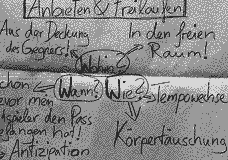 Anbieten & Freilaufen
Aus der Deckung
des Gegners!
In den freien
Raum!
Wohin?
schon
bevor man
Mitspieler den Pass
gefangen hat!
Wann?
Wie?
Tempowechsel
Körpertäuschung
Antizipation